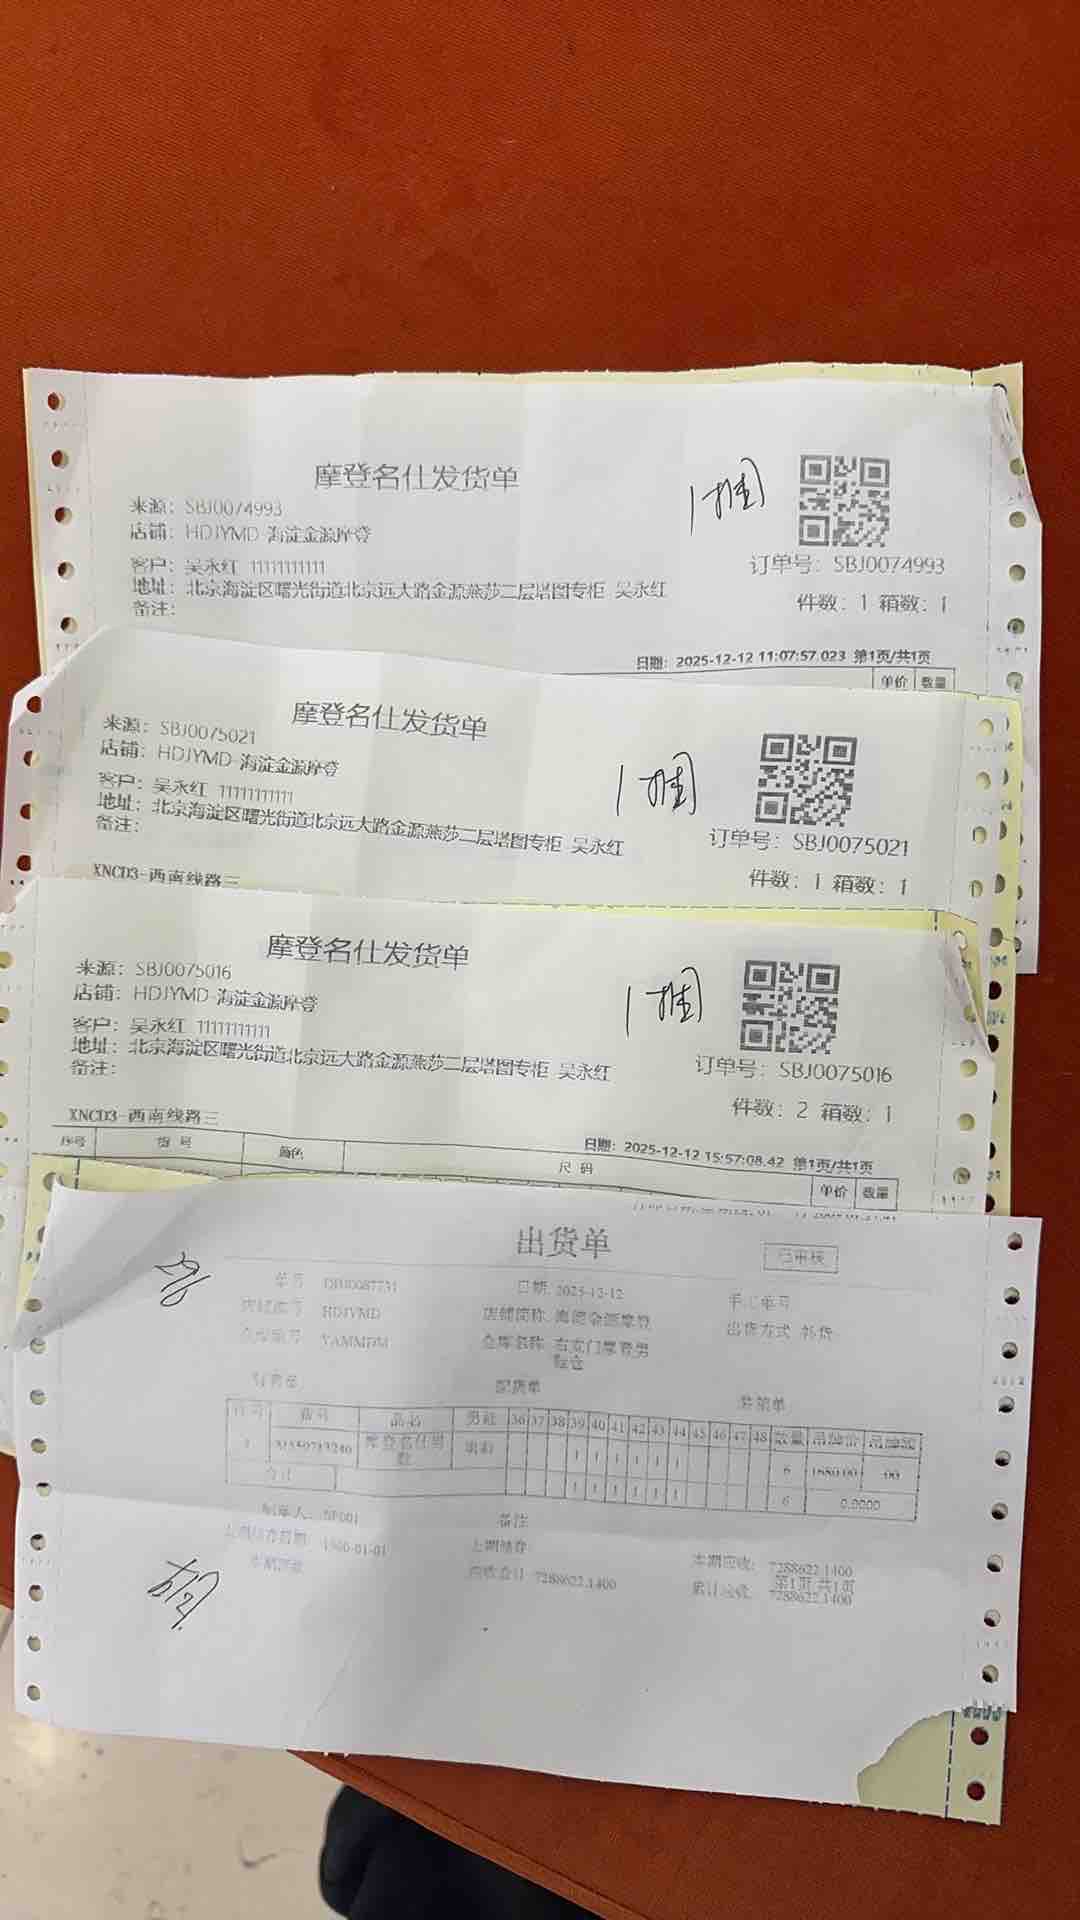 摩登名仕发货单
1捆
来源：SBJ0074993
店铺：HDJYMD-海淀金源摩登
客户：吴永红 11111111111
订单号：SBJ0074993
地址：北京海淀区曙光街道北京远大路金源燕莎二层塔图专柜 吴永红
备注：
件数：1 箱数：1
日期：2025-12-12 11:07:57.023 第1页/共1页
单价 数量
摩登名仕发货单
1捆
来源：SBJ0075021
店铺：HDJYMD-海淀金源摩登
客户：吴永红 11111111111
地址：北京海淀区曙光街道北京远大路金源燕莎二层塔图专柜 吴永红
订单号：SBJ0075021
备注：
件数：1 箱数：1
XNCD3-西南线路三
摩登名仕发货单
1捆
来源：SBJ0075016
店铺：HDJYMD-海淀金源摩登
客户：吴永红 11111111111
地址：北京海淀区曙光街道北京远大路金源燕莎二层塔图专柜 吴永红
订单号：SBJ0075016
备注：
件数：2 箱数：1
XNCD3-西南线路三
日期：2025-12-12 15:57:08.42 第1页/共1页
序号 货号 颜色 尺码 单价 数量
出货单
已审核
单号 日期 2025-12-12 手工单号
店铺编号 HDJYMD 店铺简称 海淀金源摩登 出货方式 补货
仓库编号 YAMMDM 仓库名称 右安门摩登男鞋仓
配货单
行号 货号 品名 男鞋 36 37 38 39 40 41 42 43 44 45 46 47 48 数量 吊牌价 吊牌额
1 摩登名仕男鞋 1 1 1 1 1 1 6 1680.00 .00
合计 1 1 1 1 1 1 6 0.0000
制单人 备注
1900-01-01 上期结存 本期应收：7288622.1400
应收合计 7288622.1400 第1页 共1页
累计应收 7288622.1400